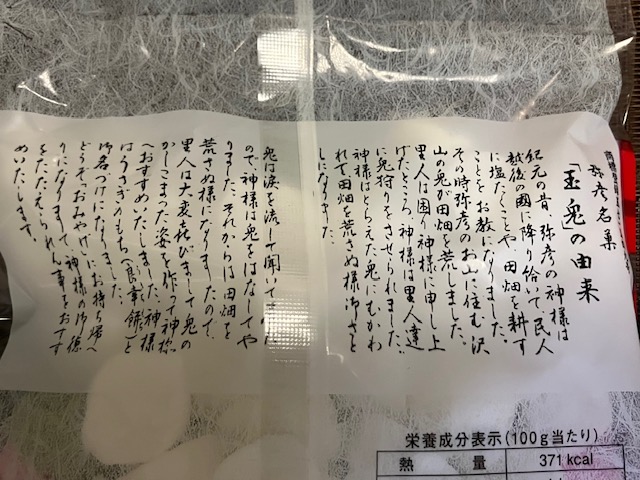 弥彦名菓
「玉兎」の由来
紀元の昔、弥彦の神様は
越後の國に降り給いて民人
に塩たくことや田畑を耕す
ことをお教になりました。
その時弥彦のお山に住む沢
山の兎が田畑を荒しました。
里人は困り神様に申し上
げたところ神様は里人達
に兎狩りをさせられました。
神様はとらえた兎にむかわ
れて田畑を荒さぬ様御さと
しになりました。
兎は涙を流して聞いて した
ので、神様は兎をはなしてや
りました。それからは田畑を
荒さぬ様になりましたので、
里人は大変喜びまして兎の
かしこまった姿を作って神様
へおすすめいたしました。神様
はうさぎのもち(良幸餅)と
御名づけになりました。
どうぞ「おみやげ」にお持ち帰へ
りになりまして、神様の御徳
をたたえられん事をおすす
めいたします。
栄養成分表示(100g当たり)
熱量 371kcal